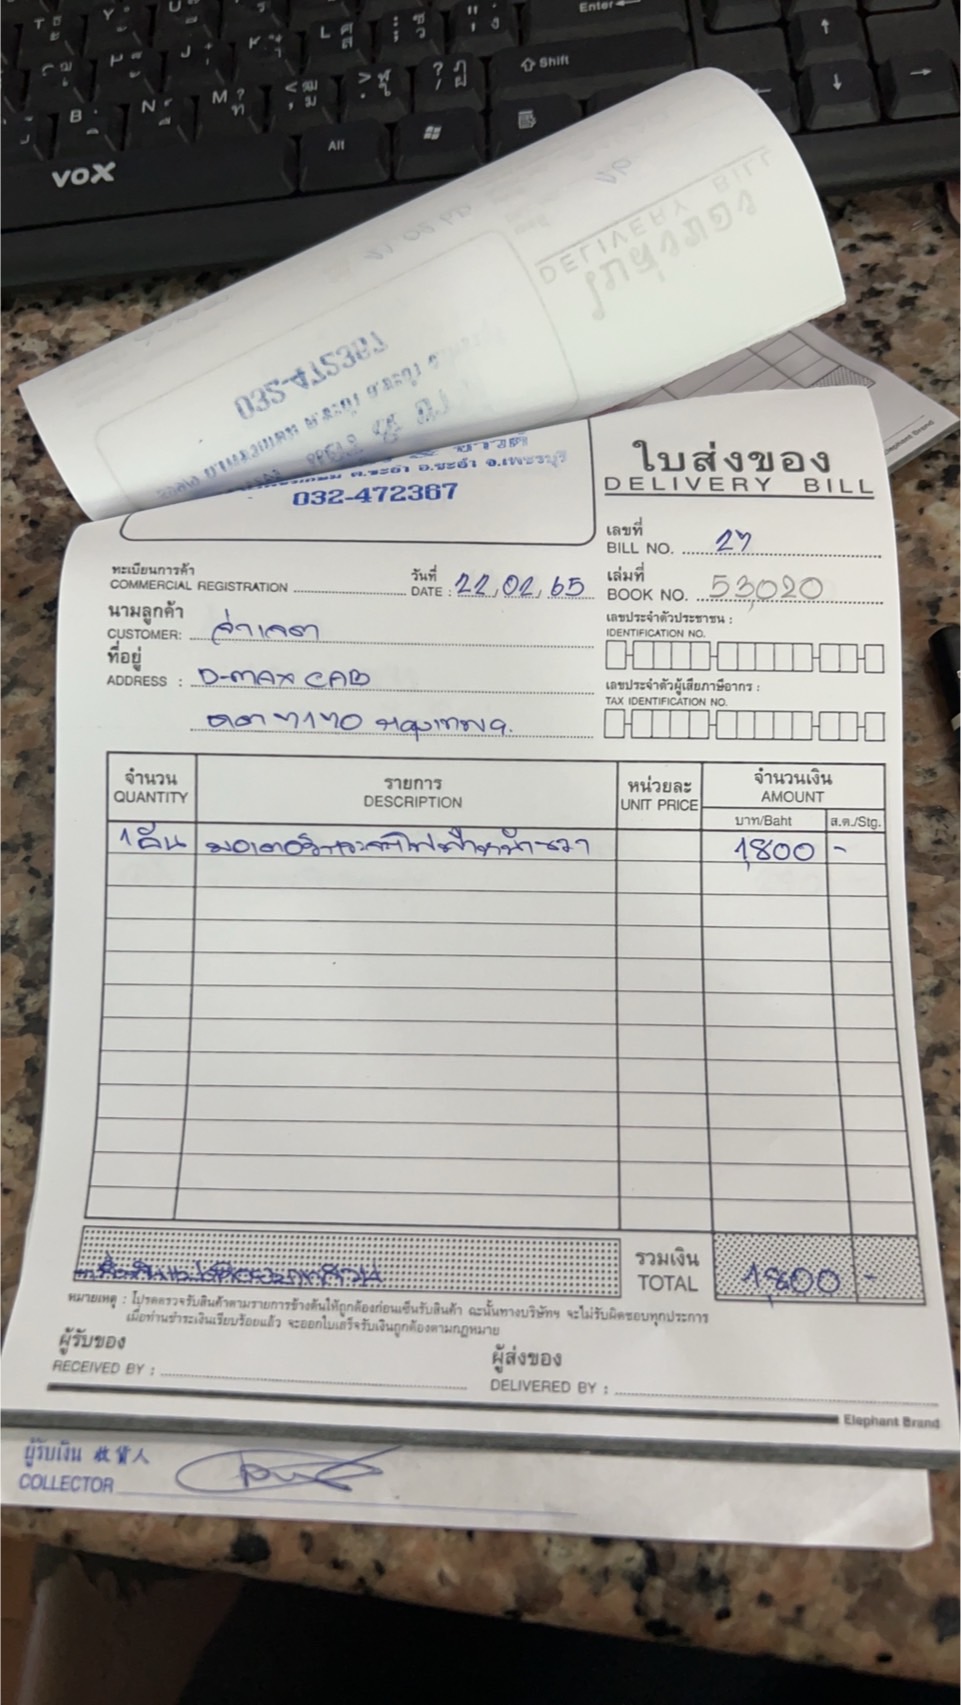 Enter
Shift
Alt
VOX
DELIVERY BILL
ต.ชะอำ อ.ชะอำ จ.เพชรบุรี
032-472367
ใบส่งของ
DELIVERY BILL
เลขที่
BILL NO. 27
ทะเบียนการค้า
COMMERCIAL REGISTRATION
วันที่
DATE : 22,02,65
เล่มที่
BOOK NO. 53,020
นามลูกค้า
CUSTOMER:
เลขประจำตัวประชาชน :
IDENTIFICATION NO.
ที่อยู่
ADDRESS : D-MAX CAB
เลขประจำตัวผู้เสียภาษีอากร :
TAX IDENTIFICATION NO.
จำนวน
QUANTITY
รายการ
DESCRIPTION
หน่วยละ
UNIT PRICE
จำนวนเงิน
AMOUNT
บาท/Baht
ส.ต./Stg.
1 อัน 1,800 -
รวมเงิน
TOTAL
1,800 -
หมายเหตุ : โปรดตรวจรับสินค้าตามรายการข้างต้นให้ถูกต้องก่อนเซ็นรับสินค้า ฉะนั้นทางบริษัทฯ จะไม่รับผิดชอบทุกประการ
เมื่อท่านชำระเงินเรียบร้อยแล้ว จะออกใบเสร็จรับเงินถูกต้องตามกฎหมาย
ผู้รับของ
RECEIVED BY :
ผู้ส่งของ
DELIVERED BY :
Elephant Brand
ผู้รับเงิน 收貨人
COLLECTOR